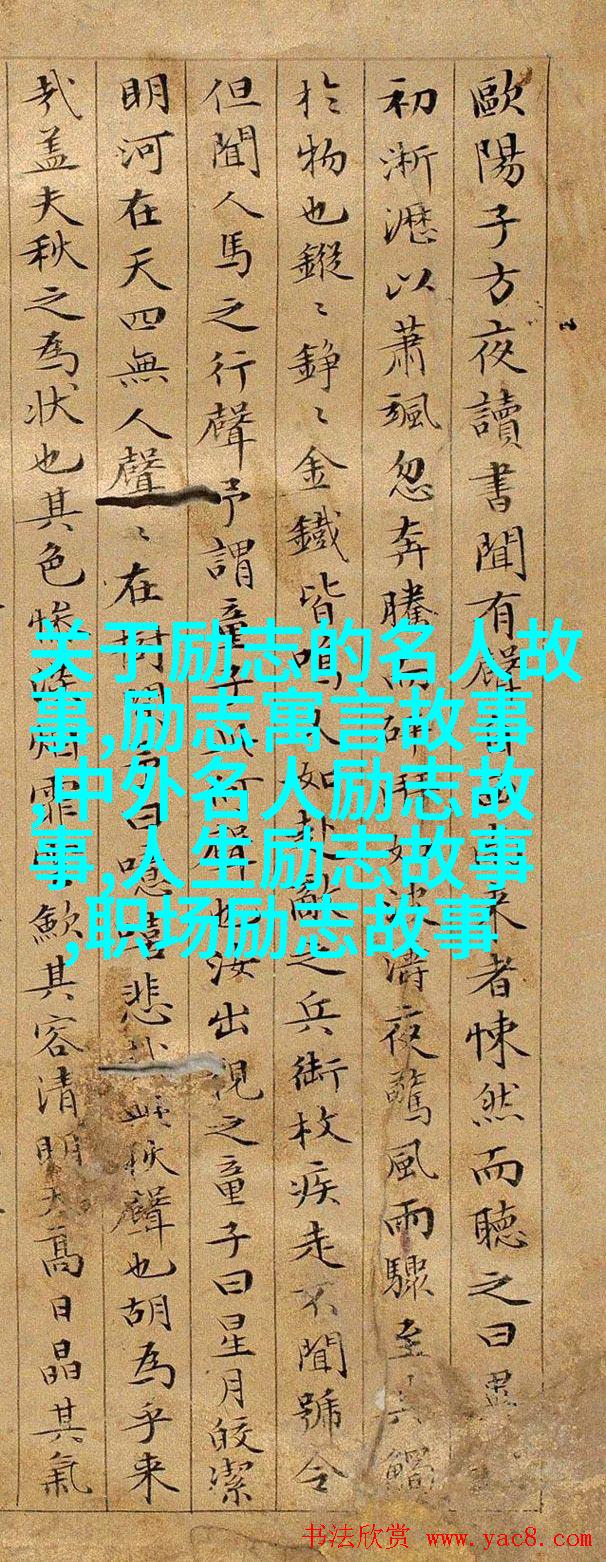 歐陽子方夜讀書聞有聲來者悚然而聽之曰異
初淅瀝以蕭颯忽奔騰而砰湃如波濤夜驚風雨驟至其觸
於物也鏦〻錚〻金鐵皆鳴又如赴敵之兵銜枚疾走不聞號令
但聞人馬之行聲予謂童子此何聲也汝出視之童子曰星月皎潔
明河在天四無人聲〻在樹間曰噫嘻悲秋聲也胡為乎來
㢤盖夫秋之為狀也其色慘澹烟霏歛其容清明天高日晶其氣
关于励志的名人故
事,励志寓言故事
,中外名人励志故
事,人生励志故事
,职场励志故事
书法欣赏 www.yac8.com